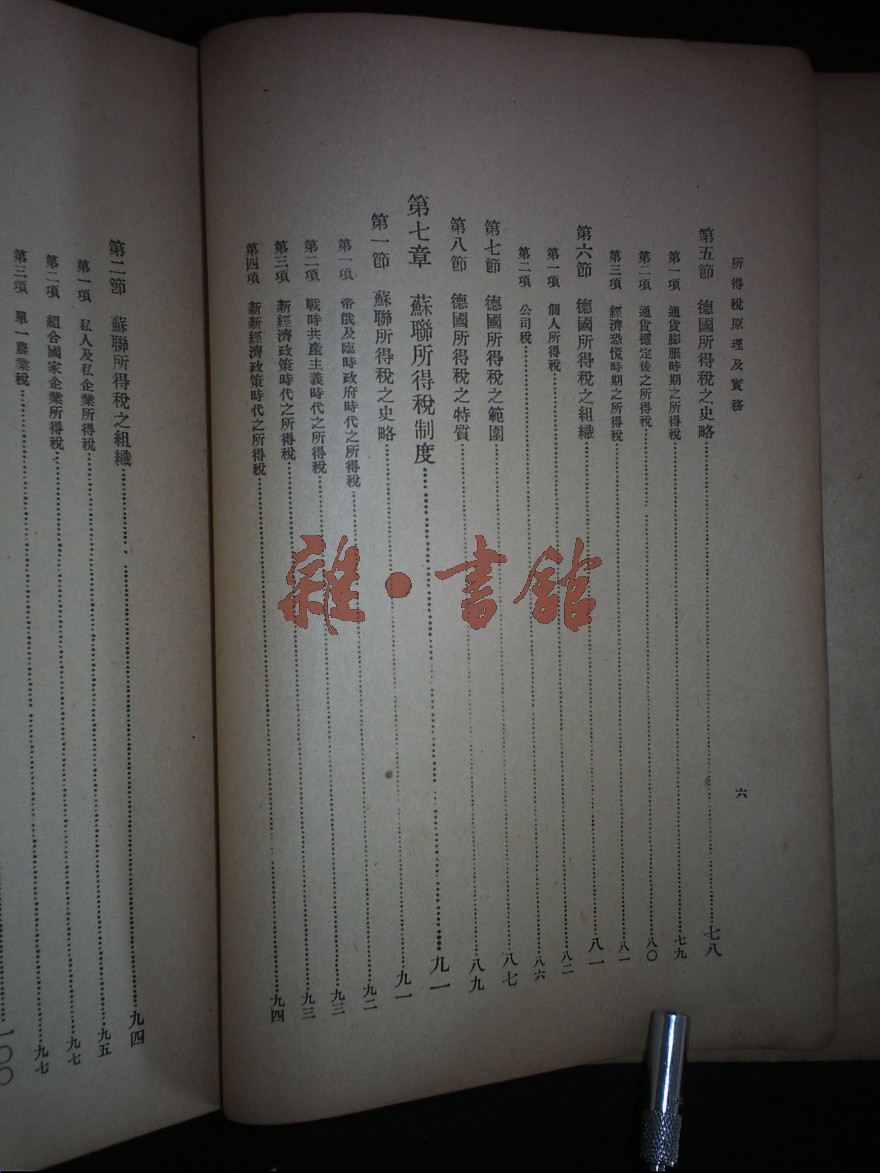 所得稅原理及實務
六
第五節 德國所得稅之史略 七八
第一項 通貨膨脹時期之所得稅 七九
第二項 通貨穩定後之所得稅 八〇
第三項 經濟恐慌時期之所得稅 八一
第六節 德國所得稅之組織 八一
第一項 個人所得稅 八二
第二項 公司稅 八六
第七節 德國所得稅之範圍 八七
第八節 德國所得稅之特質 八九
第七章 蘇聯所得稅制度 九一
第一節 蘇聯所得稅之史略 九一
第一項 帝俄及臨時政府時代之所得稅 九二
第二項 戰時共產主義時代之所得稅 九三
第三項 新經濟政策時代之所得稅 九三
第四項 新新經濟政策時代之所得稅 九四
第二節 蘇聯所得稅之組織 九四
第一項 私人及私企業所得稅 九五
第二項 組合國家企業所得稅 九七
第三項 單一農業稅 九七
一〇〇
雜·書館